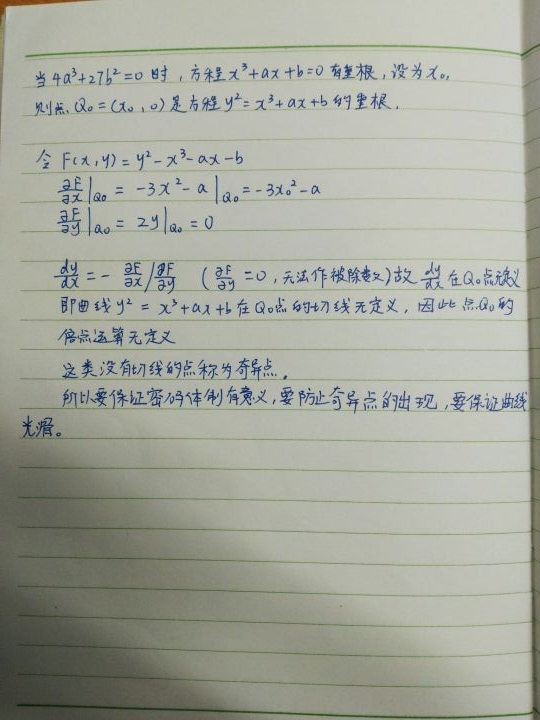 当 4a³+27b²=0 时，方程 x³+ax+b=0 有重根，设为 x₀，
则点 Q₀=(x₀,0) 是方程 y²=x³+ax+b 的重根．
令 F(x,y)=y²-x³-ax-b
∂F/∂x|Q₀ = -3x²-a|Q₀ = -3x₀²-a
∂F/∂y|Q₀ = 2y|Q₀ = 0
dy/dx = - ∂F/∂x / ∂F/∂y （∂F/∂y =0，无法作被除数）故 dy/dx 在Q₀点无定义
即曲线 y² = x³+ax+b 在Q₀点的切线无定义，因此点Q₀的
倍点运算无定义
这类没有切线的点称为奇异点．
所以要保证密码体制有意义，要防止奇异点的出现，要保证曲线
光滑。